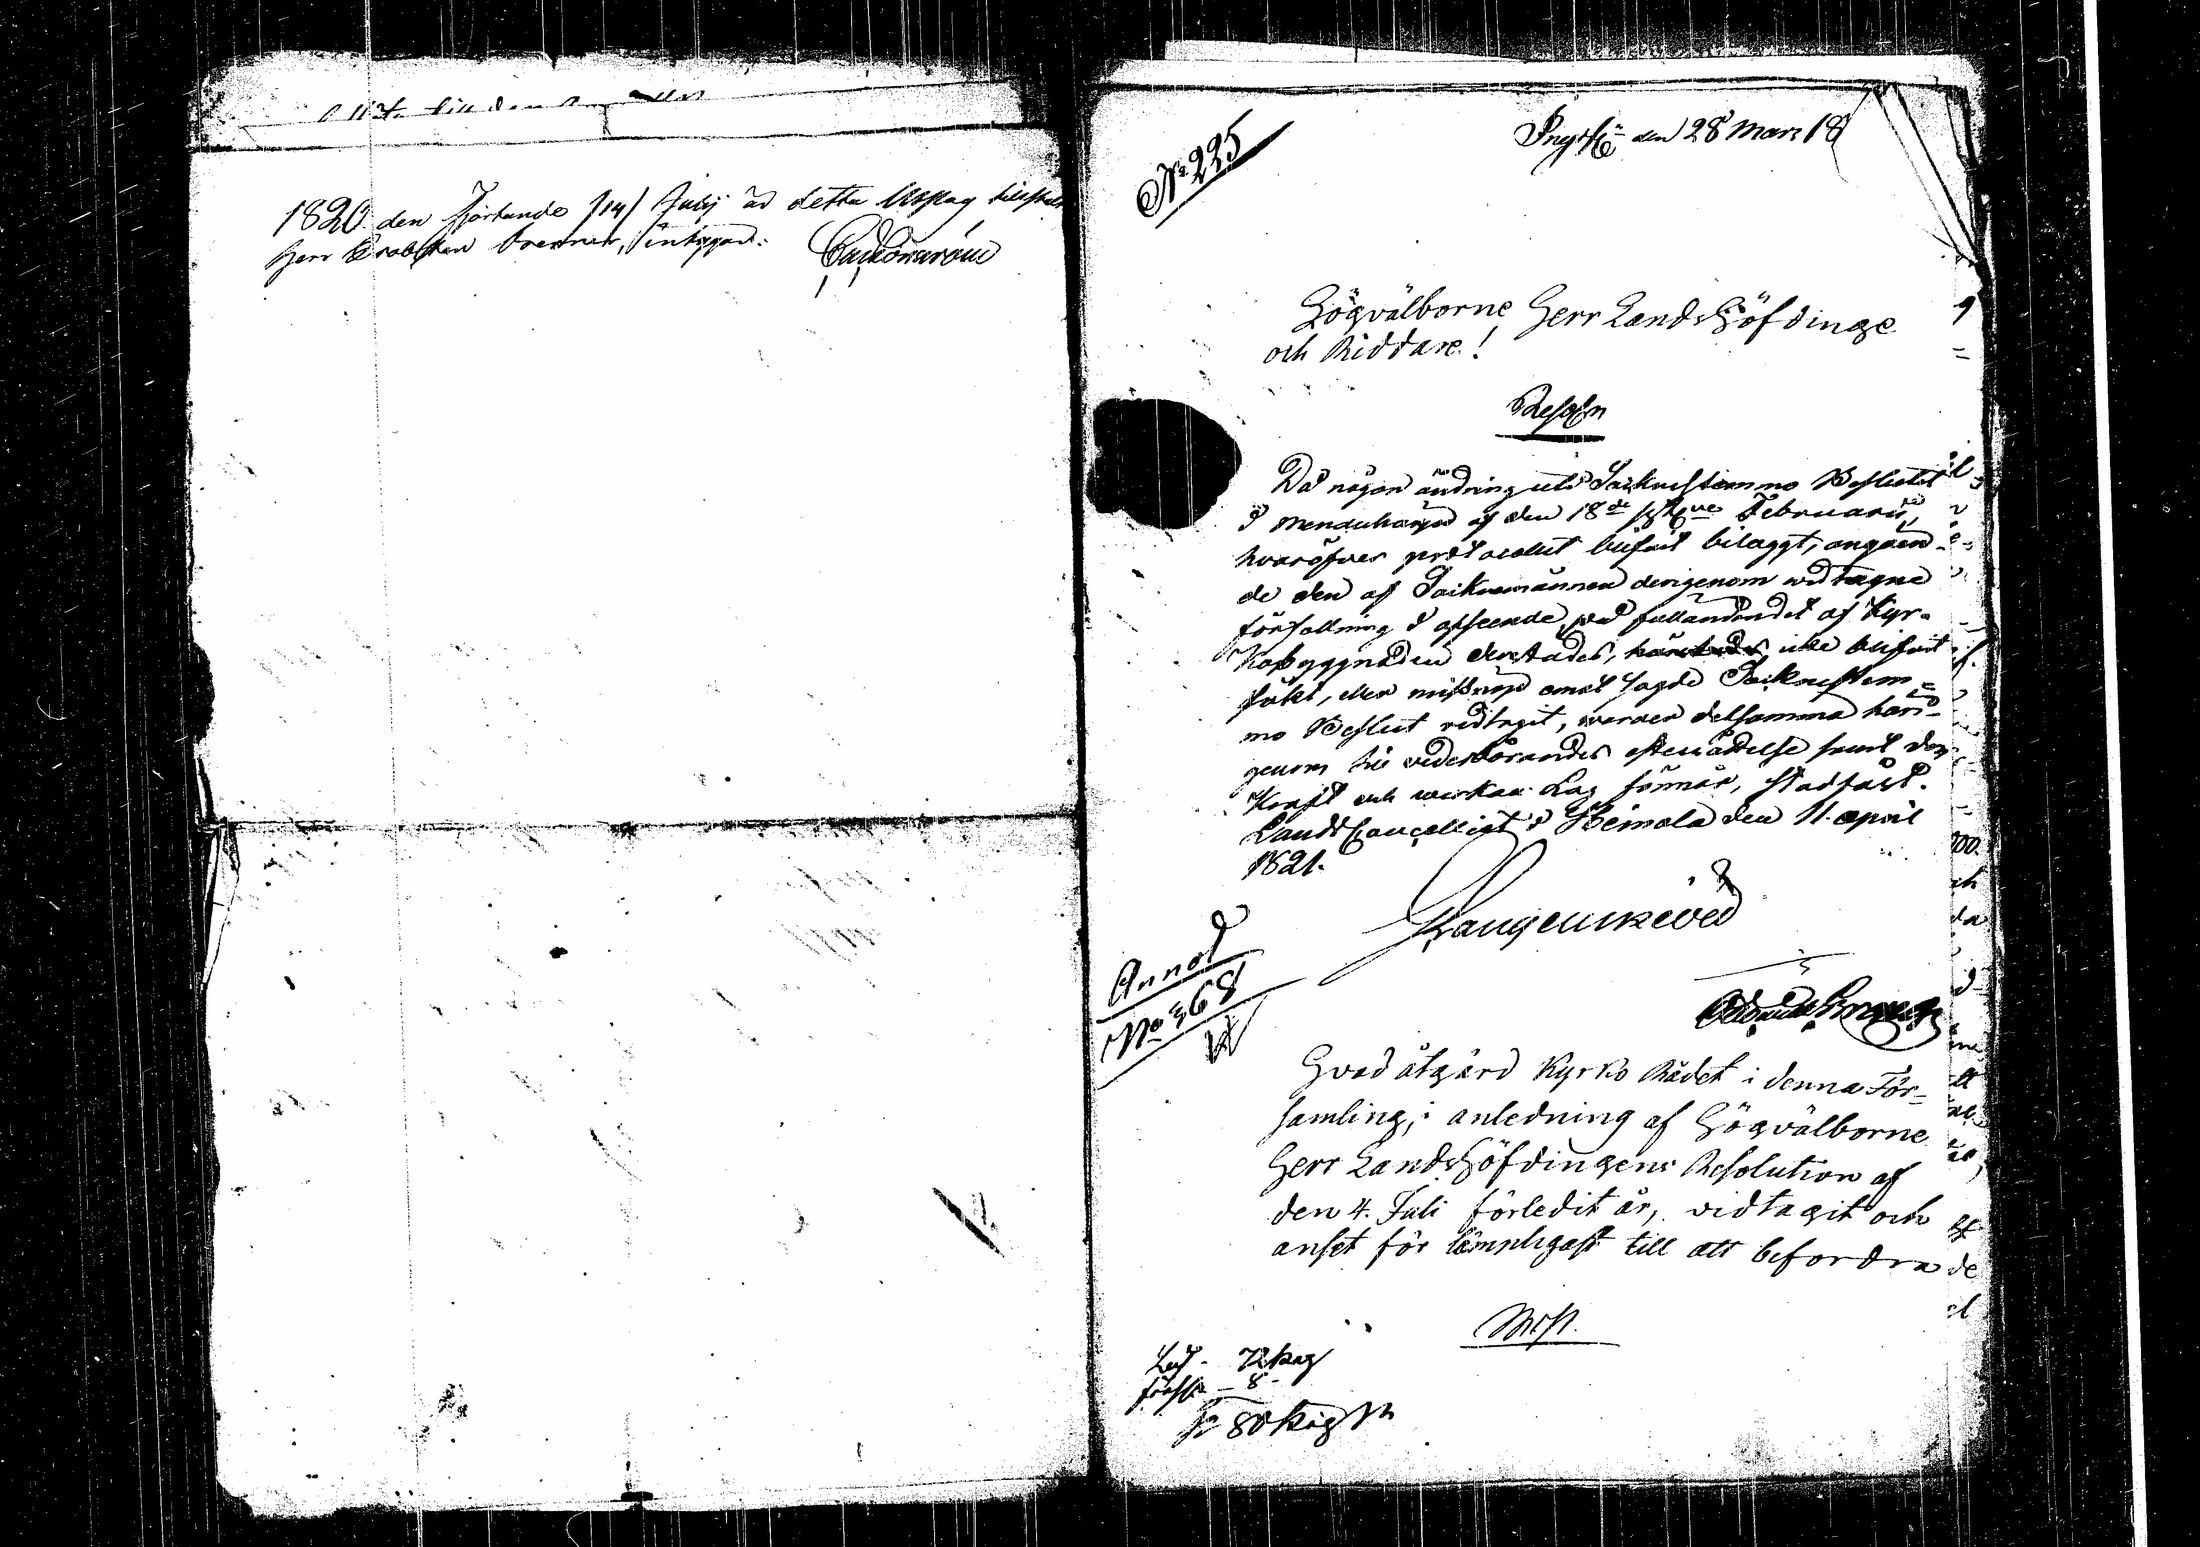 1820 den fjortonde /14/ Julij är detta utslag
Herr Probsten Brenner, intygar.
No 225
den 28 Mars 18
Högvälborne Herr LandsHöfdinge
och Riddare!
Resol:n
Då någon ändring uti Socknestämmo Beslutet
i Menduharju af den 18de Februarii,
hvaröfver protocollet blifvit bilaggt, angåen-
de den af Socknemännen derigenom vidtagne
författning i afseende på fulländandet af Kyr-
kobyggnaden derstädes, icke blifvit
sökt, eller missnöje emot sagde Socknestäm-
mo Beslut vidtagit, varder detsamma häri-
genom till vederbörandes efterrättelse samt den
Kraft och verkan Lag förmår, stadfäst.
LandsCancelliet i Heinola den 11. April
1821.
Annot
No 368
Hvad åtgärd Kyrko Rådet i denna För-
samling, i anledning af Högvälborne
Herr LandsHöfdingens Resolution af
den 4. Juli förledit år, vidtagit och
anset för lämpligast till att befordra
72 kog
8
80 kog